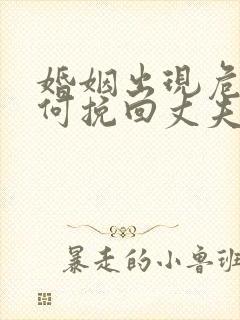 婚姻出現危
何挽回丈夫
暴走的小鲁班